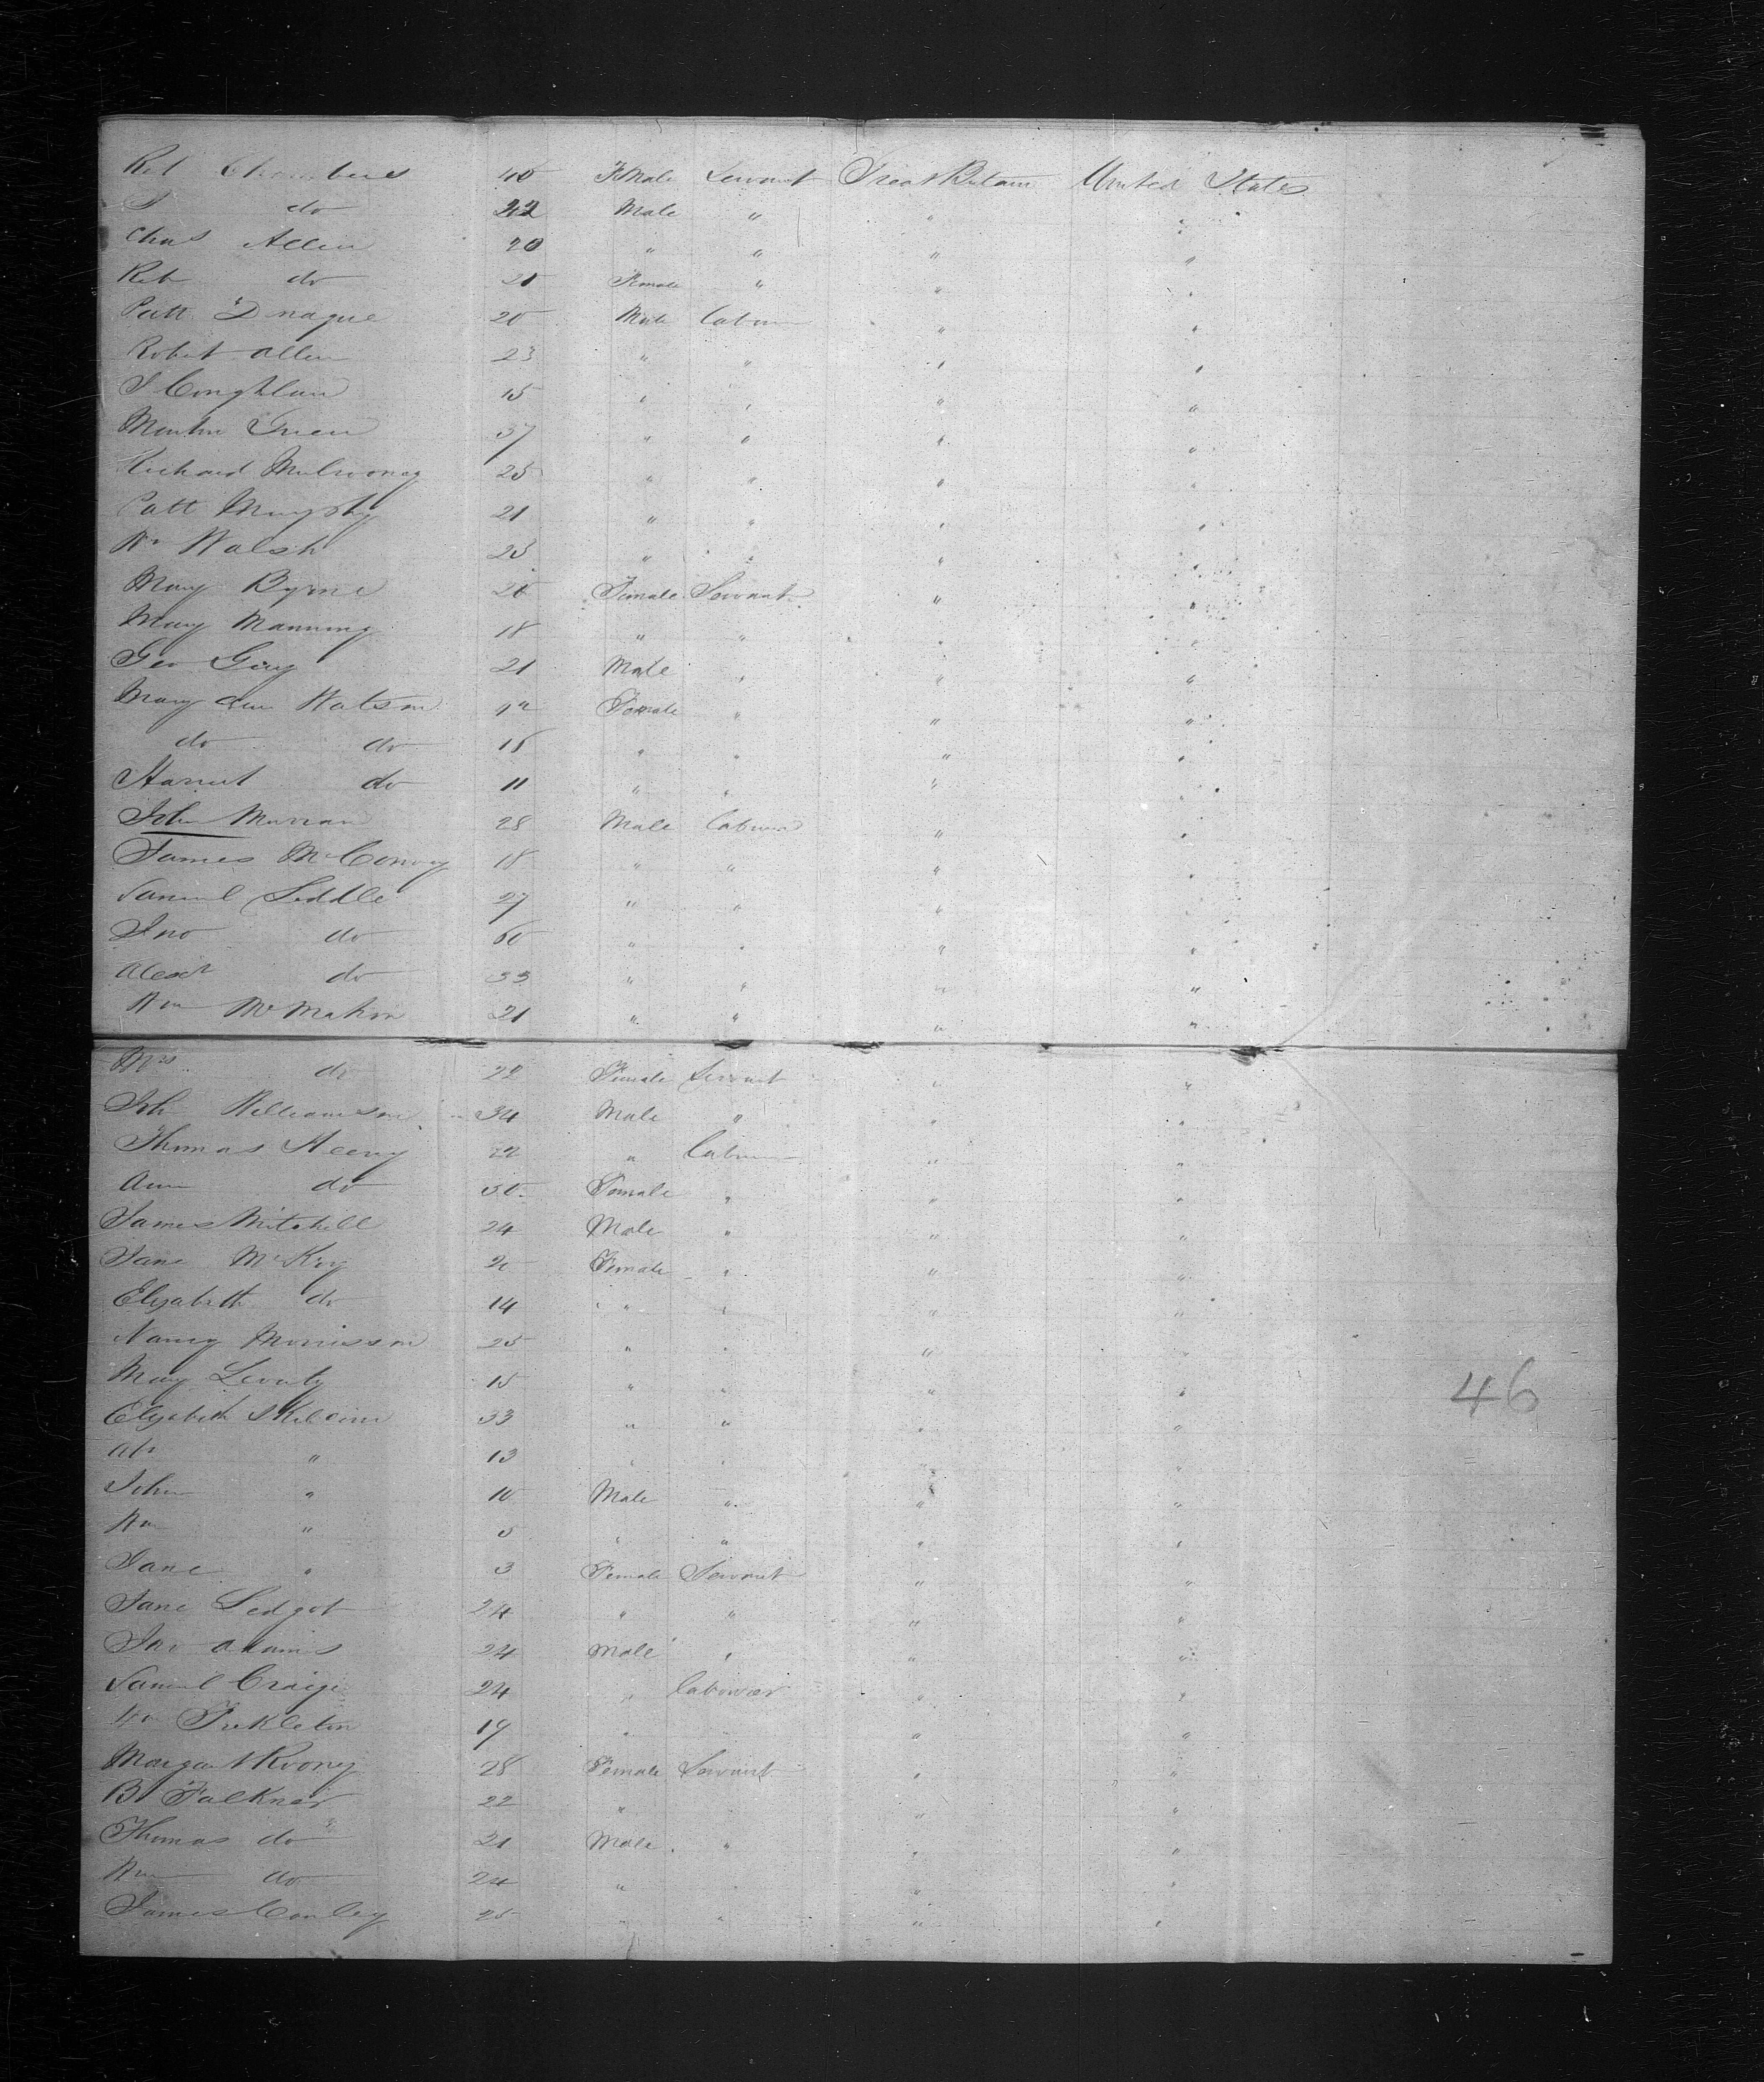 Reb Chambers 40 Female Servant Great Britain United States
S do 22 Male " " "
Chas Allen 20 " " " "
Reb do 21 Female " " "
Patt 20 Male Labour " "
Robert Allen 23 " " " "
J Coughlan 15 " " " "
Martin Green 37 " " " "
Richard Mulrooney 25 " " " "
Patt Murphy 21 " " " "
Wm Walsh 25 " " " "
Mary Byrne 20 Female Servant " "
Mary Manning 18 " " " "
Geo Gray 21 Male " " "
Mary Ann Watson Female " " "
do do 15 " " " "
Harriet do 11 " " " "
John Murran 28 Male Labourer " "
James McConvey 18 " " " "
Samuel Liddle 27 " " " "
Jno do 60 " " " "
Alexr do 33 " " " "
Wm McMahon 21 " " " "
Mrs do 22 Female Servant " "
Joh Williamson 34 Male " " "
Thomas Heeny 22 " Labour " "
Ann do 30 Female " " "
James Mitchell 24 Male " " "
Jane McKoy 20 Female " " "
Elizabeth do 14 " " " "
Nancy Morrisson 25 " " " "
Mary 15 " " " "
Elizabeth 33 " " " "
" 13 " " " "
John " 10 Male " " "
Wm " 5 " " " "
Jane " 3 Female Servant " "
Jane Ledgot 24 " " " "
Jno Adams 24 Male " " "
Samuel Craige 24 " Labourer " "
Wm 19 " " " "
Margaret Roony 28 Female Servant " "
B Falkner 22 " " "
Thomas do 21 Male " " "
Wm do 24 " " " "
James Conley 25 " " " "
46